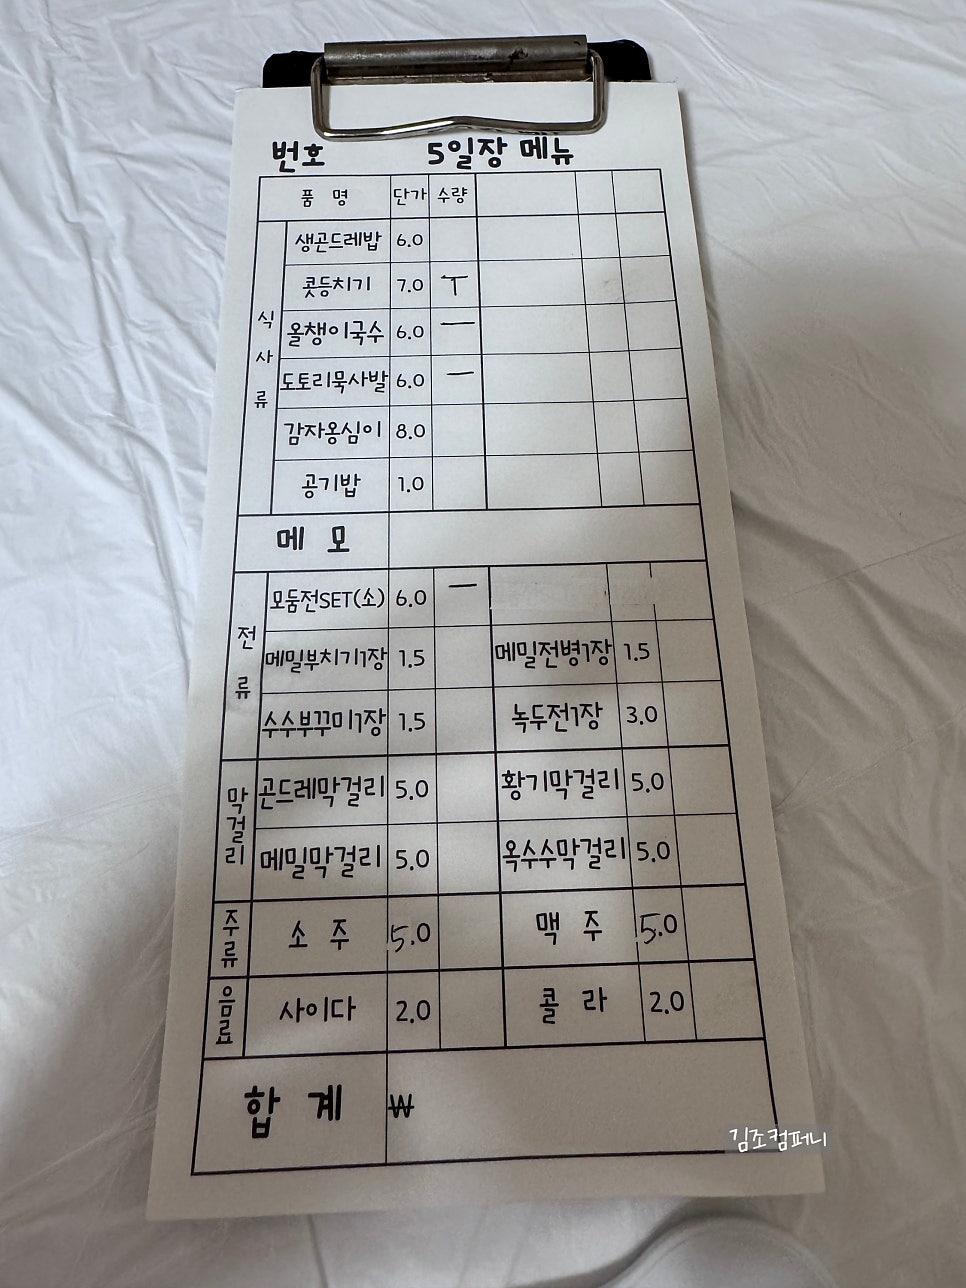 번호 5일장 메뉴
품 명 단가 수량
식사류
생곤드레밥 6.0
콧등치기 7.0 ㅜ
올챙이국수 6.0 ㅡ
도토리묵사발 6.0 ㅡ
감자옹심이 8.0
공기밥 1.0
메 모
전류
모둠전SET(소) 6.0 ㅡ
메밀부치기1장 1.5 메밀전병1장 1.5
수수부꾸미1장 1.5 녹두전1장 3.0
막걸리
곤드레막걸리 5.0 황기막걸리 5.0
메밀막걸리 5.0 옥수수막걸리 5.0
주류
소 주 5.0 맥 주 5.0
음료
사이다 2.0 콜 라 2.0
합 계 ₩
김조컴퍼니